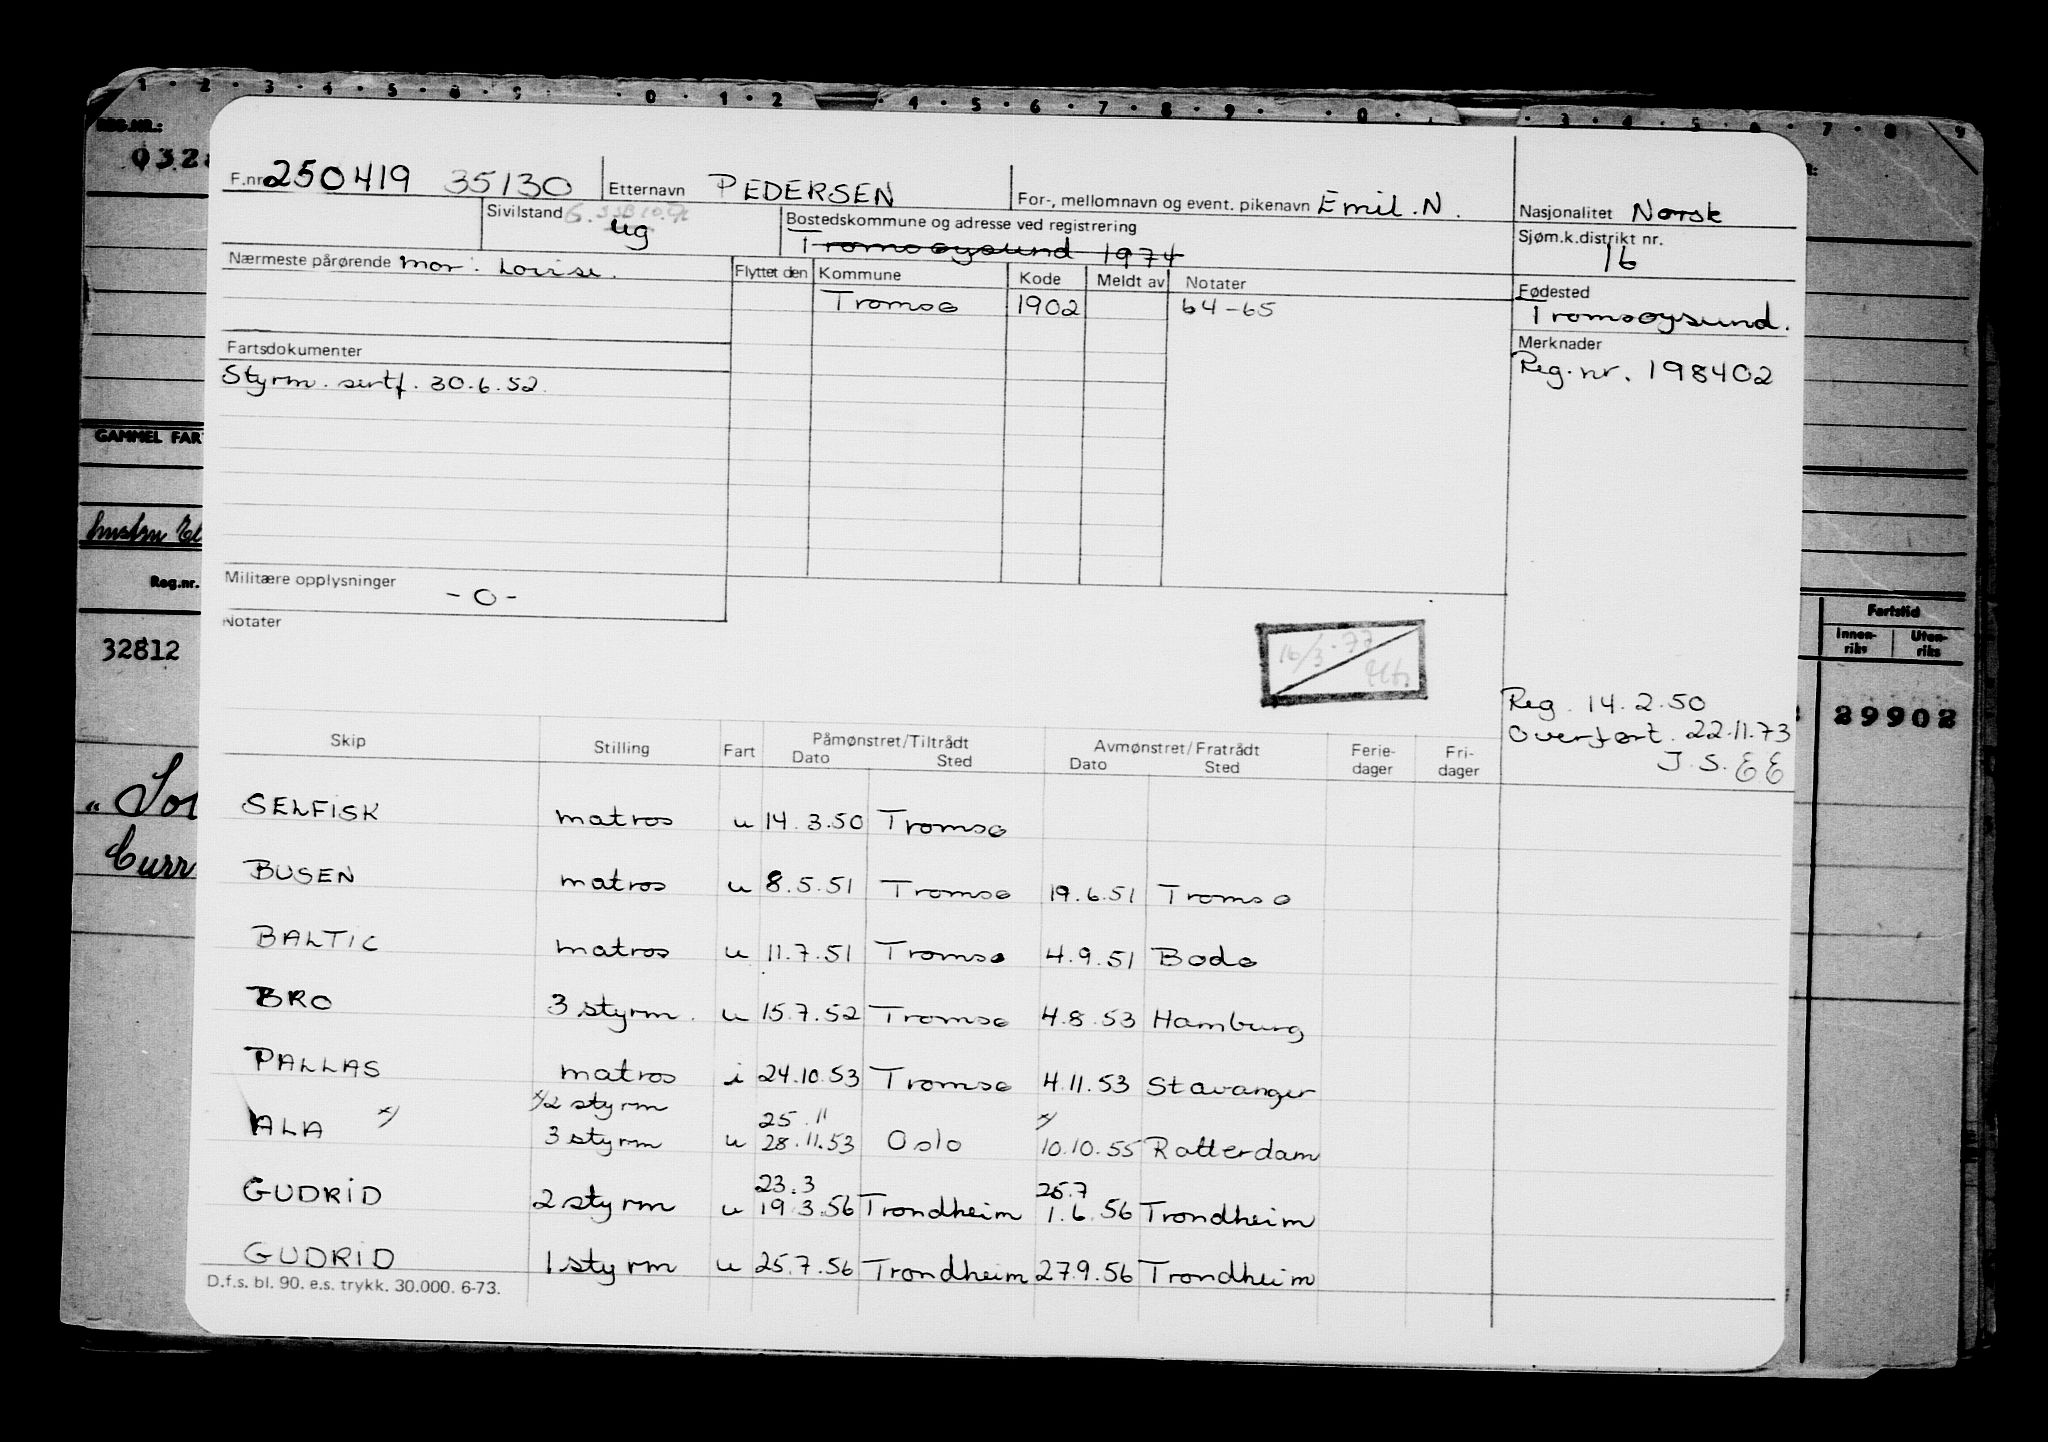 1 · 2 · 3 · 4 · 5 · 6 · 9 · 0 · 1 · 2 · 4 · 5 · 6 · 7 · 8 · 9 · 0 · 3 · 4 · 5 · 6 · 7 · 8 · 9
REG.NR.:
0328
F.nr 250419 35130 Etternavn PEDERSEN For-, mellomnavn og event. pikenavn Emil . N. Nasjonalitet Norsk
Sivilstand ug Bostedskommune og adresse ved registrering Sjøm.k.distrikt nr.
Tromsøysund 1974 16
Nærmeste pårørende mor: Lovise. Flyttet den Kommune Kode Meldt av Notater Fødested
Tromsø 1902 64-65 Tromsøysund.
Fartsdokumenter Merknader
Styrm. sertf. 30.6.52. Reg.nr. 198402
GAMMEL FAR
Reg.nr.
Militære opplysninger
- 0 -
Notater
Fartstid
Innen-riks Uten-riks
32812
16/3-77
29902
Reg. 14.2.50
Overført. 22.11.73
J.S. EE
Skip Stilling Fart Påmønstret/Tiltrådt Avmønstret/Fratrådt Ferie- Fri-
Dato Sted Dato Sted dager dager
SELFISK matros u 14.3.50 Tromsø
BUSEN matros u 8.5.51 Tromsø 19.6.51 Tromsø
BALTIC matros u 11.7.51 Tromsø 4.9.51 Bodø
BRO 3 styrm. u 15.7.52 Tromsø 4.8.53 Hamburg
PALLAS matros i 24.10.53 Tromsø 4.11.53 Stavanger
x/2 styrm 25.11 x/
ALA x/ 3 styrm u 28.11.53 Oslo 10.10.55 Rotterdam
23.3 25.7
GUDRID 2 styrm u 19.3.56 Trondheim 1.6.56 Trondheim
GUDRID 1 styrm u 25.7.56 Trondheim 27.9.56 Trondheim
D.f.s. bl. 90. e.s. trykk. 30.000. 6-73.